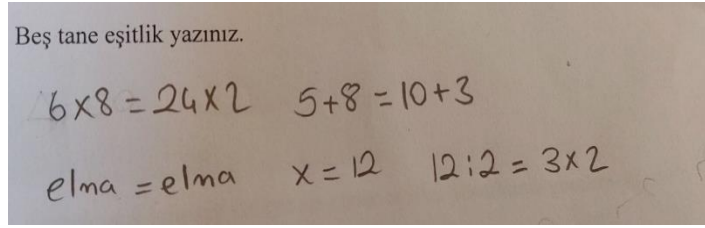 Beş tane eşitlik yazınız.
6x8 = 24x2 5+8 = 10+3
elma = elma x = 12 12:2 = 3x2